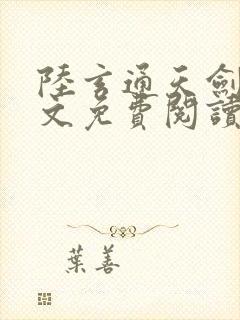 陸玄通天劍
文免費閱讀
葉善